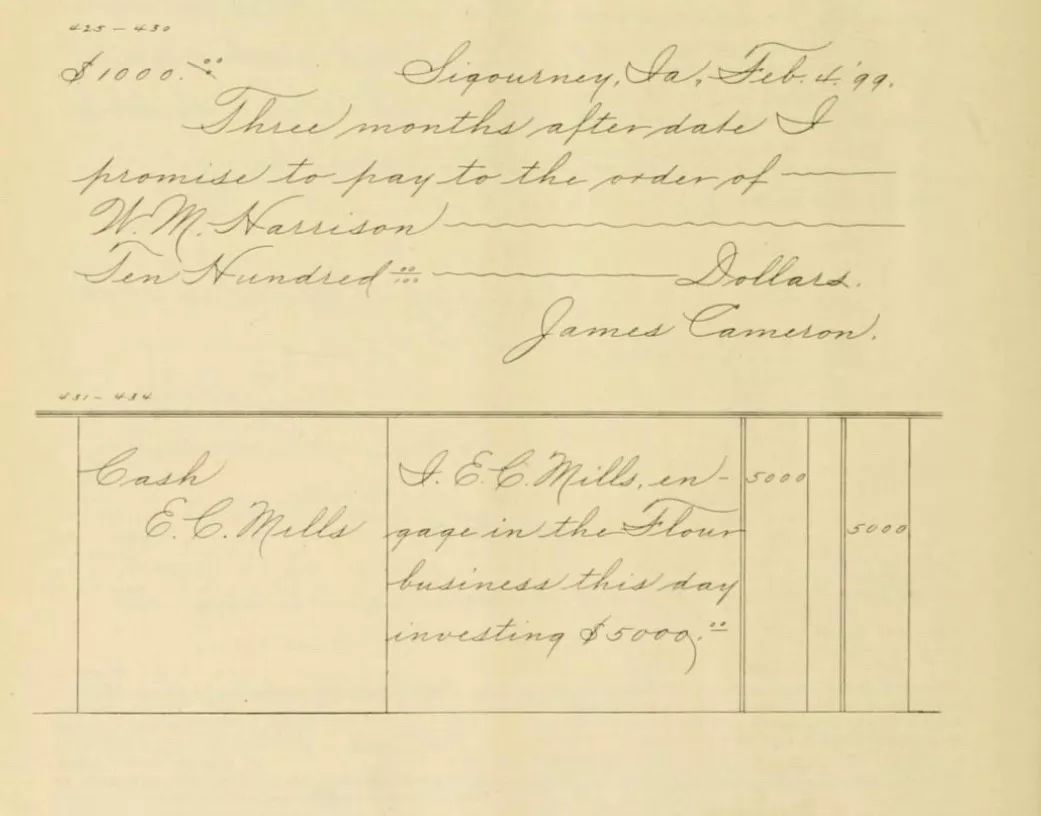 425 – 430
$1000.00 Sigourney, Ia., Feb. 4, '99.
Three months after date I
promise to pay to the order of
W. M. Harrison
Ten Hundred 00/100 Dollars.
James Cameron.
431 – 434
Cash I. E. C. Mills, en- 5000
E. C. Mills gage in the Flour 5000
business this day
investing $5000.00